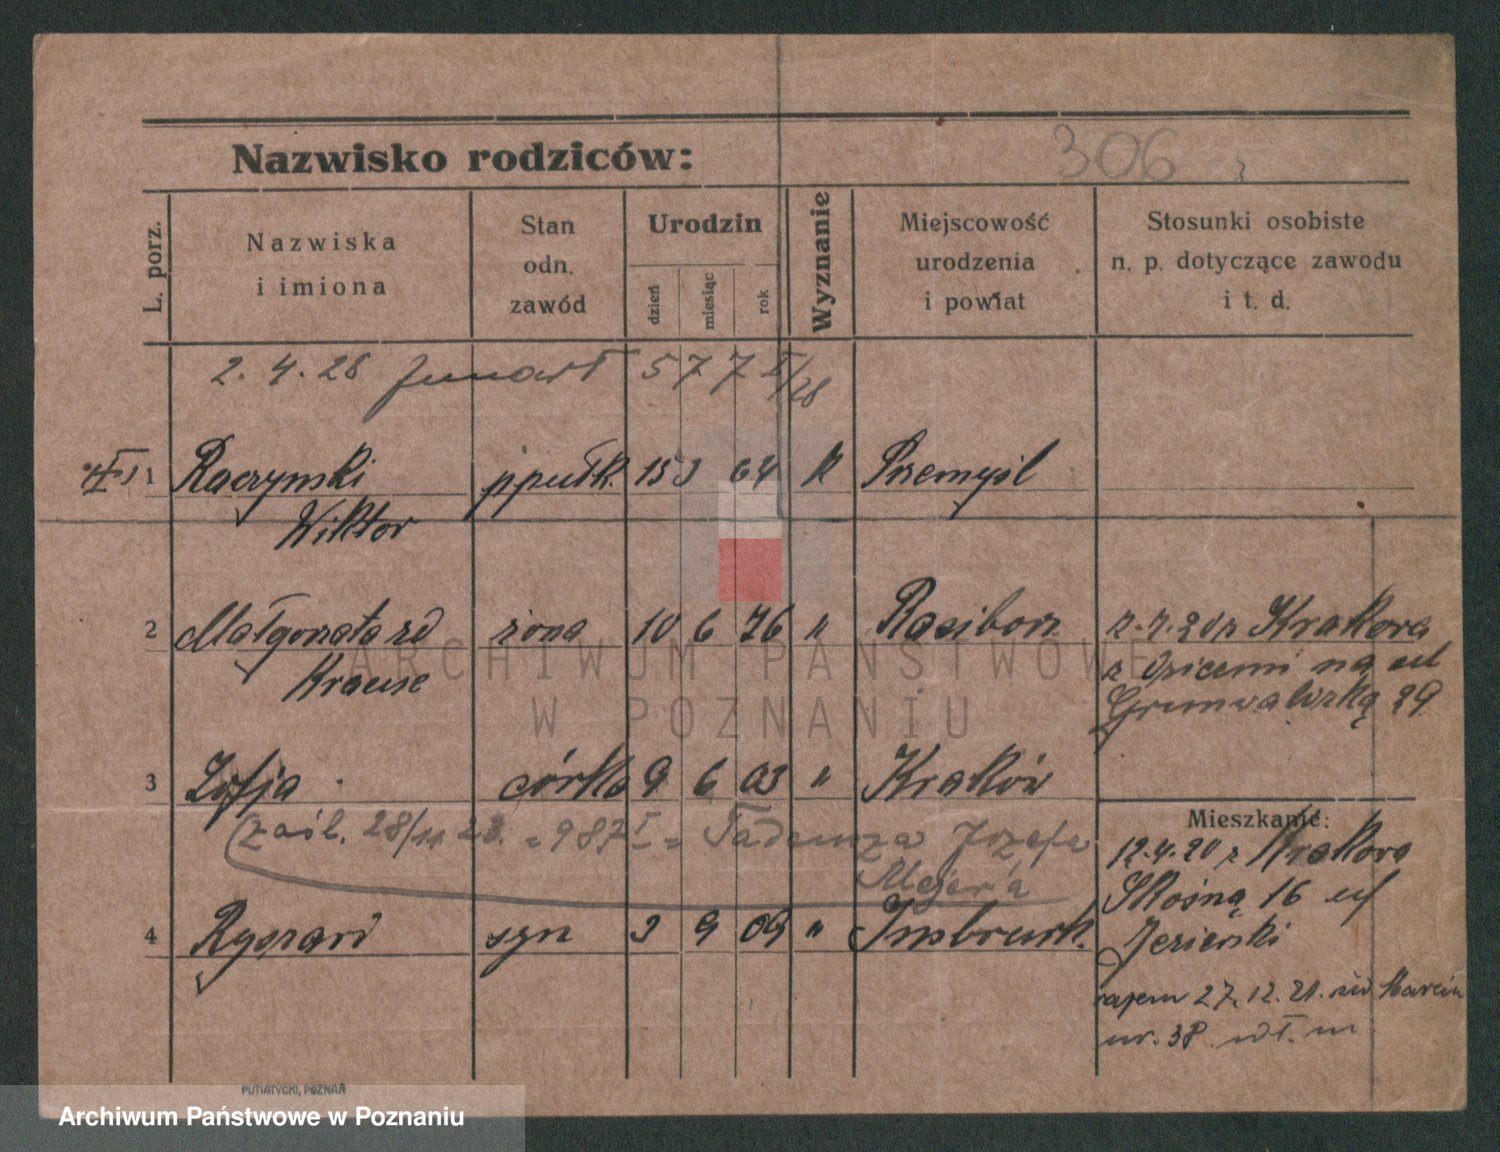 306
Nazwisko rodziców:
L. porz.
Nazwiska
i imiona
Stan
odn.
zawód
Urodzin
dzień
miesiąc
rok
Wyznanie
Miejscowość
urodzenia
i powiat
Stosunki osobiste
n. p. dotyczące zawodu
i t. d.
2. 4. 28 577 I/28
1 Raczynski ppułk. 15 3 64 K Przemyśl
Wiktor
2 Małgorzata zd żona 10 6 76 " Racibor.
Krause
z Krakowa
z dziećmi na ul
Grunwaldzką 29
3 Zofja córka 9 6 03 " Kraków
(zaśl. 28/11 23. = 987 I = Tadeusza Józefa
Mieszkanie:
12.4.20 z Krakowa
Skośną 16 ul
Jezierski
4 Ryszard syn 3 9 09 " Insbruck.
razem 27.12.21. Marcin
nr. 38 wł. m.
PUTIATYCKI, POZNAŃ
ARCHIWUM PAŃSTWOWE
W POZNANIU
Archiwum Państwowe w Poznaniu